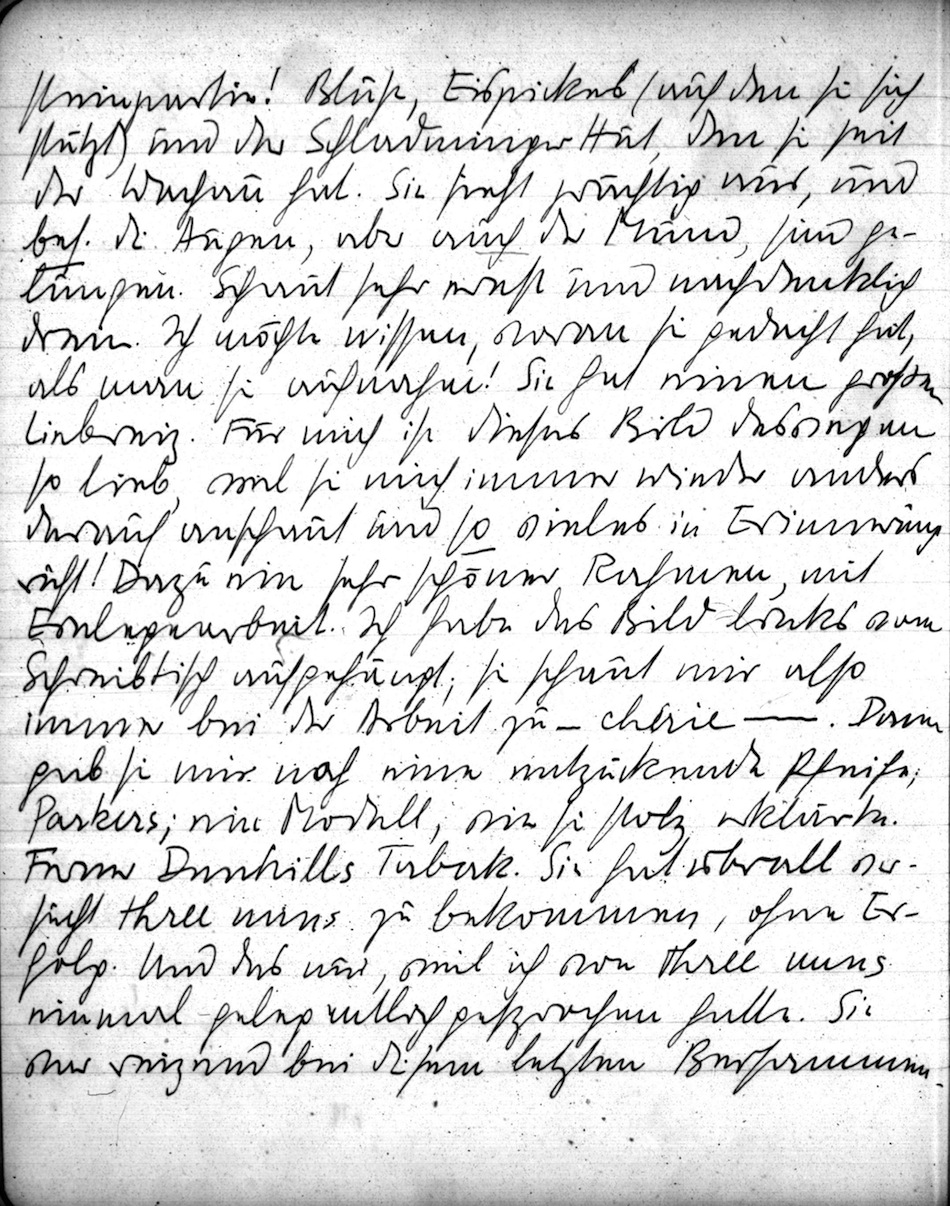 steinpartie! Bluse, Eispickel (auf den sie sich
stützt) und der Schladminger Hut, den sie seit
der Wachau hat. Sie sieht prächtig aus, und
bes. die Augen, aber auch der Mund, sind ge-
lungen. Schaut sehr ernst und nachdenklich
drein. Ich möchte wissen, woran sie gedacht hat,
als man sie aufnahm! Sie hat einen großen
Liebreiz. Für mich ist dieses Bild deswegen
so lieb, weil sie mich immer wieder anders
darauf anschaut und so vieles in Erinnerung
ruft! Dazu ein sehr schöner Rahmen, mit
Einlegearbeit. Ich habe das Bild links vom
Schreibtisch aufgehängt; sie schaut mir also
immer bei der Arbeit zu – chérie ——. Dann
gab sie mir noch eine entzückende Pfeife,
Parkers; ein Modell, wie sie stolz erklärte.
Ferner Dunhills Tabak. Sie hat überall ver-
sucht three nuns zu bekommen, ohne Er-
folg. Und das nur, weil ich von three nuns
einmal gelegentlich gesprochen hatte. Sie
war reizend bei diesem letzten Beisammen-